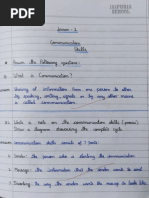 DAFFODILS
SCHOOL
Lesson - 2
Communication
Skills
Answer the following questions:
What is Communication?
Sharing of information from one person to other
by speaking, writing, signals or by any other means
is called communication
Write a note on the communication skills (process).
Draw a diagram describing the complete cycle.
Communication skills consists of 7 parts:
Sender: the person who is sending the communication
Message: the information that the sender wants to send
Encoding: the way the sender wants the message to look like